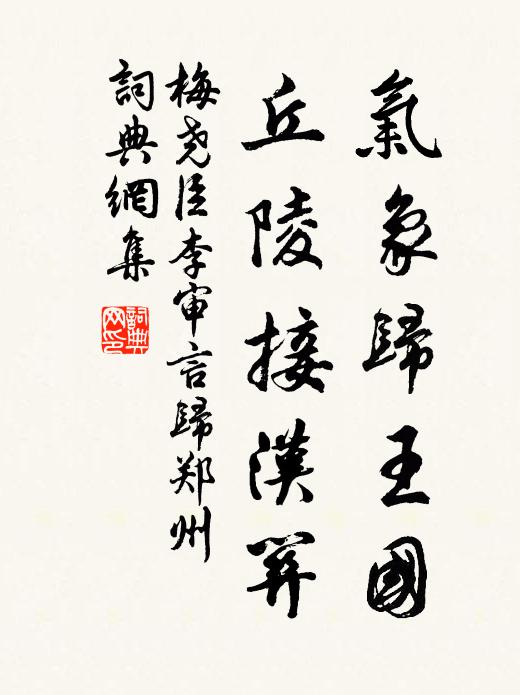 氣象歸王國
丘陵接漢
梅尧臣李审言歸郑州
詞典網集
詞典网印